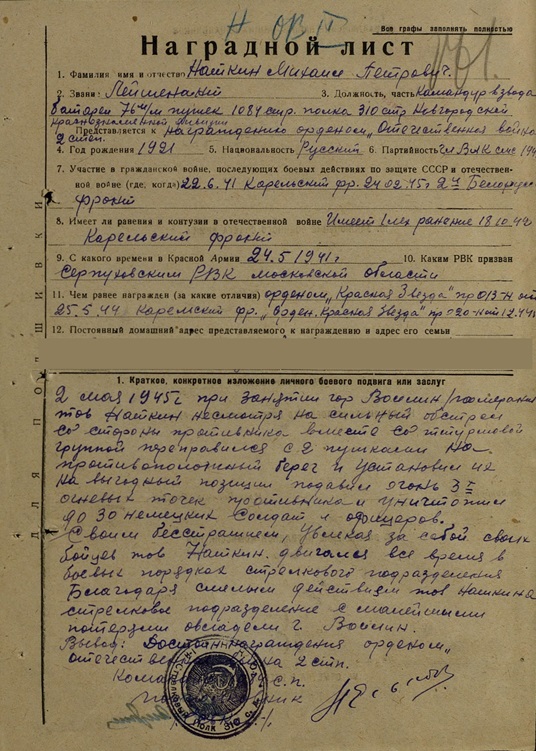 Н ОВ II
Все графы заполнять полностью
Наградной лист
1. Фамилия имя и отчество Найкин Михаил Петрович.
2. Звани: Лейтенант 3. Должность, часть Командир взвода
батареи 76 м/м пушек 1084 стр. полка 310 стр Новгородской
Краснознаменной дивизии
Представляется к награждению орденом „Отечественная война
2 степ.
4. Год рождения 1921 5. Национальность Русский 6. Партийность
7. Участие в гражданской войне, последующих боевых действиях по защите СССР и отечествен-
ной войне (где, когда) 22.6.41 Карельский фр. 24.02.45г 2й Белорус
фронт
8. Имеет ли ранения и контузии в отечественной войне Имеет 1 лех ранение 18.10.42
Карельский фронт
9. С какого времени в Красной Армии 24.5 1941г 10. Каким РВК призван
Серпуховским РВК московской области
11. Чем ранее награжден (за какие отличия) орденом „Красная Звезда" пр 013-н от
25.5.44 Карельский фр. „Орден. Красная Звезда" пр 020-н от
12. Постоянный домашний адрес представляемого к награждению и адрес его семьи
ДЛЯ ПОДШИВКИ
1. Краткое, конкретное изложение личного боевого подвига или заслуг
2 мая 1945г при занятии гор Воелин /померания
тов Найкин несмотря на сильный обстрел
со стороны противника вместе со штурмовой
группой переправился с 2 пушками на
противоположный берег и установил их
на выгодный позиции подавил огонь 3х
огневых точек противника и уничтожил
до 30 немецких солдат и офицеров.
Своим бесстрашием, увлекая за собой своих
бойцев тов Найкин. двигался все время в
боевых порядках стрелкового подразделения
Благодаря смелым действием тов Найкина
стрелковое подразделение с малейшими
потерями овладели г. Воелин.
Вывод: Достоин награждения орденом „
отечеств 2 степ.
с.п.